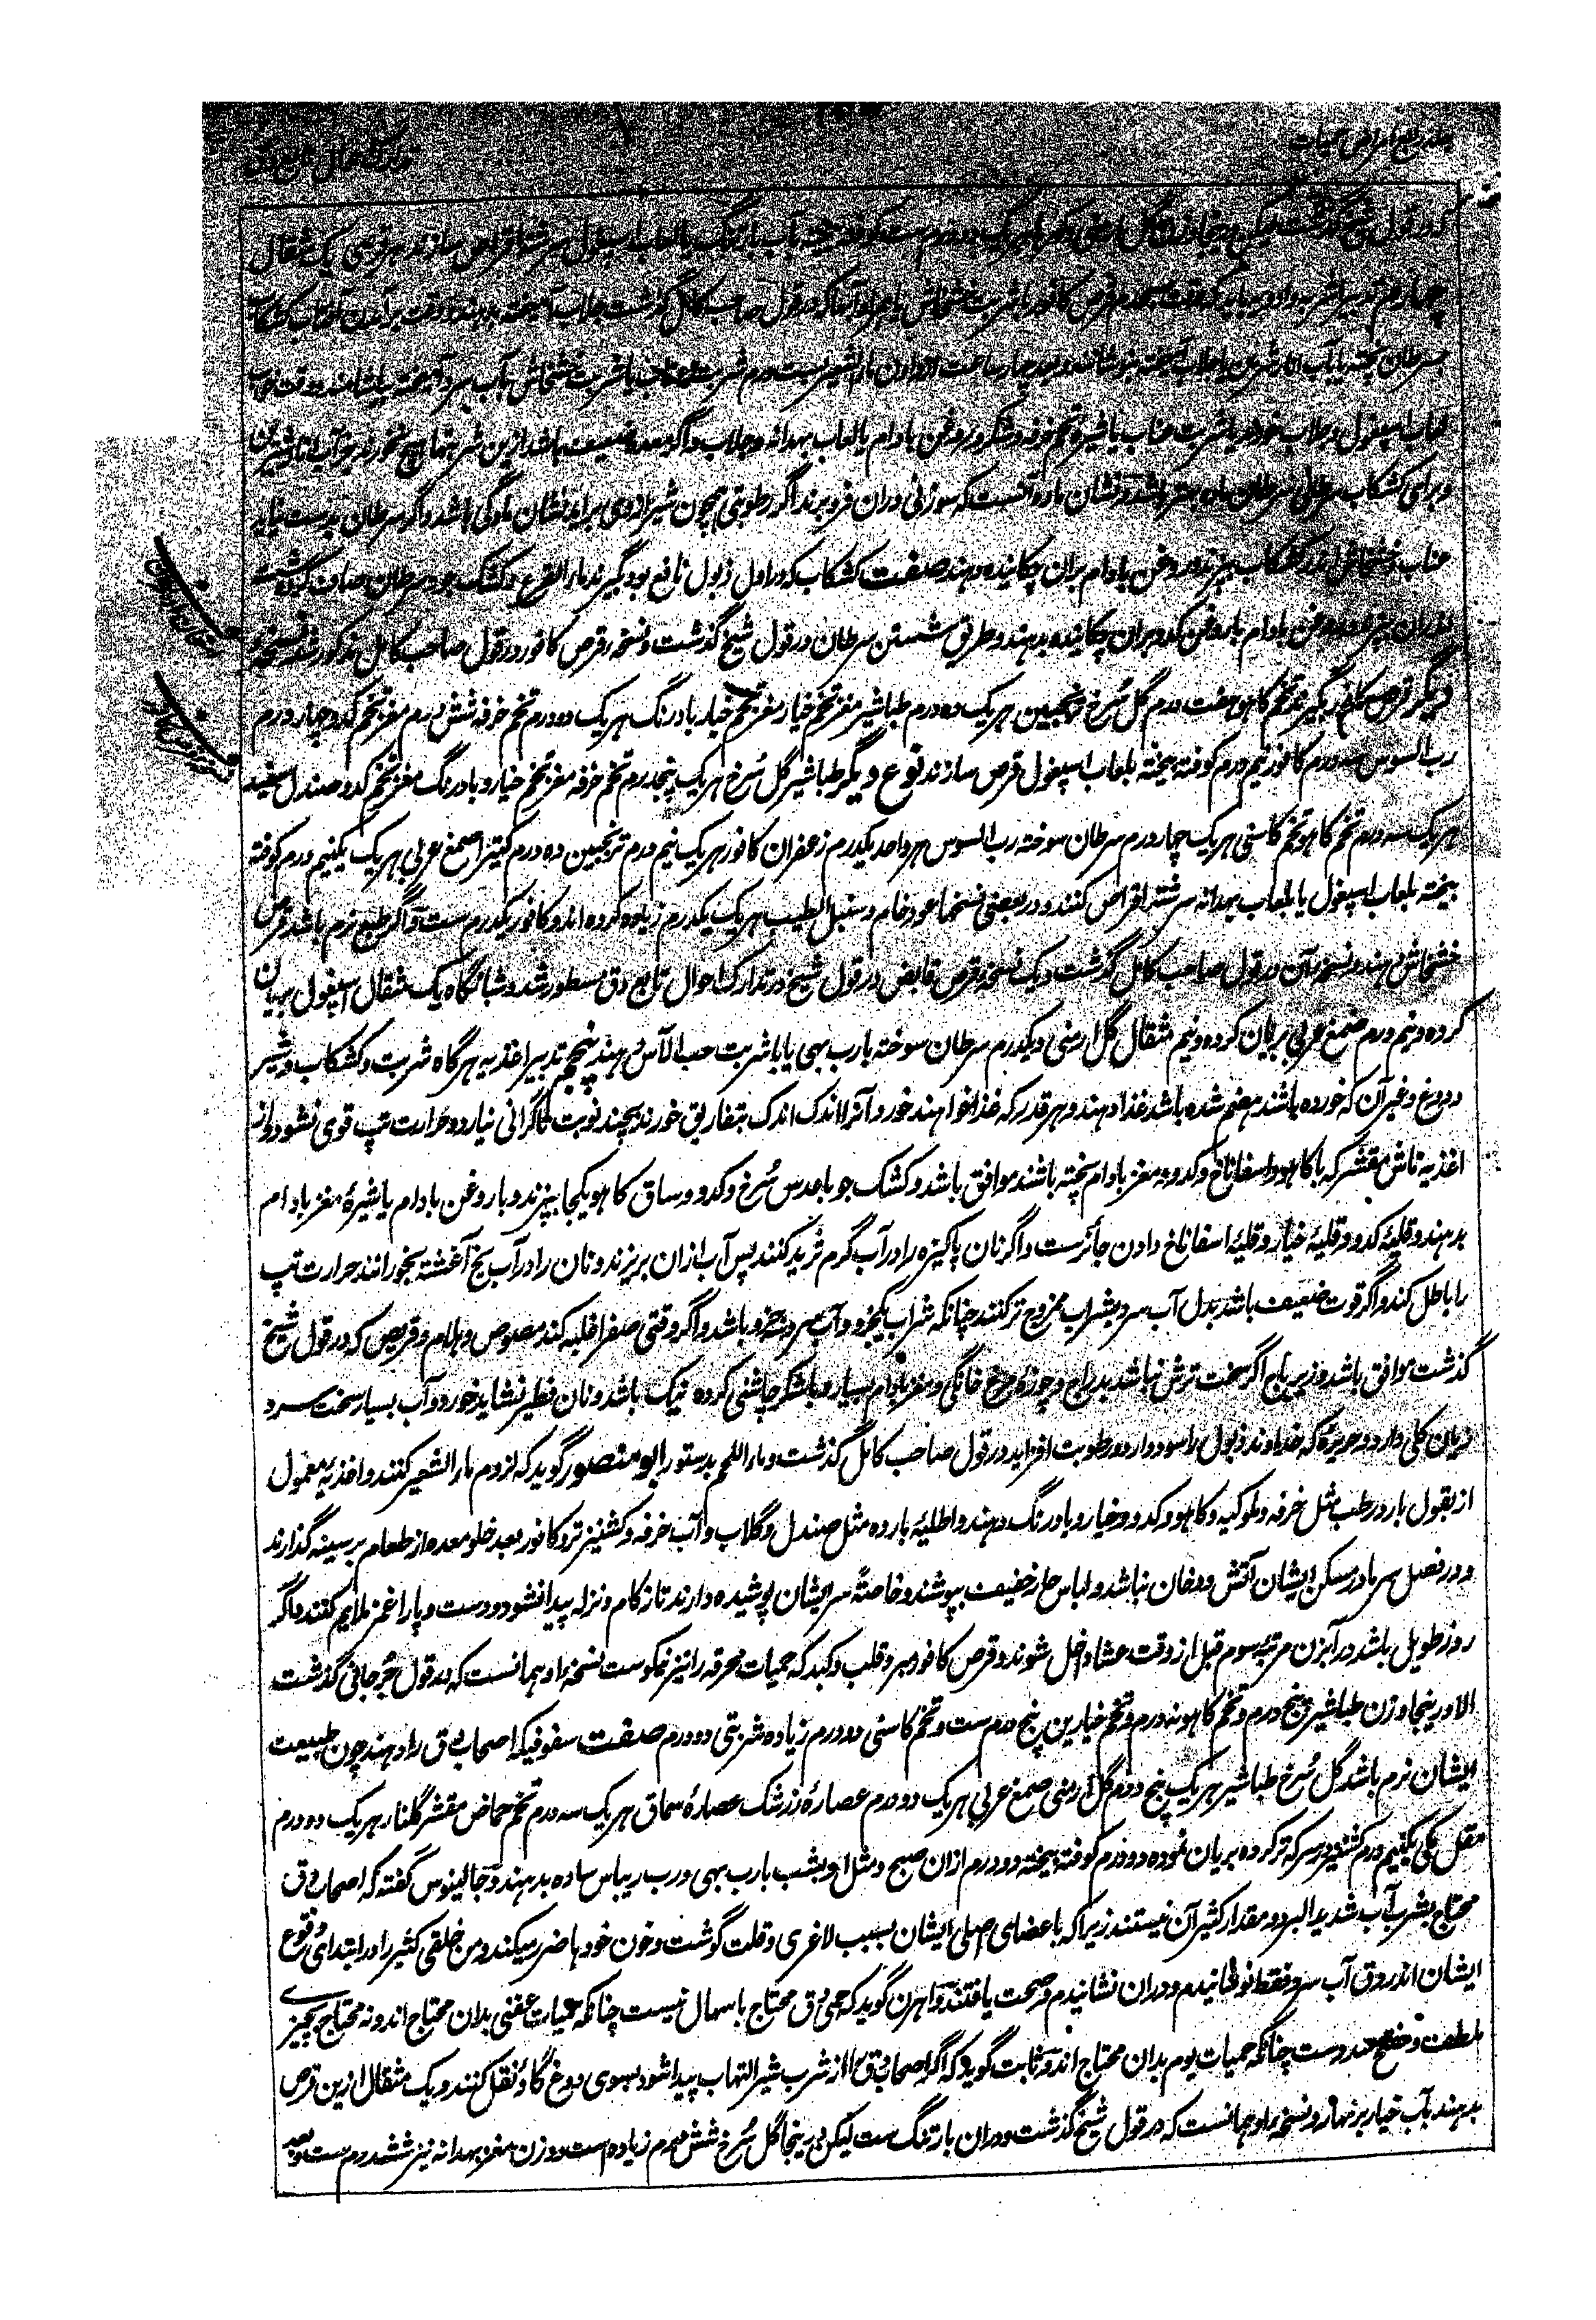 که در قول شیخ گذشت لیکن
چهارم تدبیر اشربه و ادویه باید که وقت صبحدم قرص کافور با شربت خشخاش در قول صاحب کامل گذشت بجلاب آمیخته بدهند و وقت برآمدن آفتاب کشکاب
سرطان پخته با آب انار شیرین یا جلاب آمیخته بنوشانند و بعد چهار ساعت از دادن ماء الشعیر بست درم شربت عناب یا شربت خشخاش بآب سرد آمیخته بیاشامند و وقت خواب
لعاب اسپغول و جلاب خورند یا شربت عناب یا شیره تخم خرفه و شکر و روغن بادام یا لعاب بهدانه و جلاب و اگر معده ضعیف باشد ازین شربتها هیچ نخورند جز آب انار شیرین
و برای کشکاب سرطانی سرطان ماده بهتر باشد و نشان ماده آنست که سوزنی دران فرو برند اگر رطوبتی همچون شیر ازوی برآید نشان مادگی باشد و اگر سرطان بدست نیاید
عناب و خشخاش اندر کشکاب بپزند و روغن بادام بران چکانیده دهند صفت کشکاب که در اول ذبول نافع بود بگیرند ماء القرع و کشک جو و سرطان صاف کرده شسته
دران بپزند و روغن بادام یا روغن کدو بران چکانیده بدهند و طریق شستن سرطان در قول شیخ گذشت و نسخه قرص کافور در قول صاحب کامل مذکور شد نسخه
دیگر قرص کافور بگیرند تخم کاهو هفت درم گل سُرخ ترنجبین هریک ده درم طباشیر مغز تخم خیار مغز تخم خیار بادرنگ هریک دو درم تخم خرفه شش درم مغز تخم کدو چار درم
رب السوس سه درم کافور نیم درم کوفته بیخته بلعاب اسپغول قرص سازند نوع دیگر طباشیر گل سُرخ هریک پنجدرم تخم خرفه مغز تخم خیار و بادرنگ مغز تخم کدو صندل سفید
هریک سه درم تخم کاهو تخم کاسنی هریک چار درم سرطان سوخته رب السوس هر واحد یکدرم زعفران کافور هریک نیم درم ترنجبین ده درم کتیرا صمغ عربی هریک یکنیم درم کوفته
بیخته بلعاب اسپغول یا بلعاب بهدانه سرشته اقراص کنند و در بعضی نسخها عود خام و سنبل الطیب هریک یکدرم زیاده کرده اند و کافور یکدرم ست و اگر طبع نرم باشد قرص
خشخاش دهند و نسخه آن در قول صاحب کامل گذشت و یک نسخه قرص قابض در قول شیخ در تدارک احوال تابع دق مسطور شد و شبانگاه یک مثقال اسپغول بریان
کرده و نیم درم صمغ عربی بریان کرده و نیم مثقال گل ارمنی و یکدرم سرطان سوخته با رب بهی یا با شربت حب الآس دهند پنجم تدبیر اغذیه هرگاه شربت و کشکاب و شیر
و دوغ و غیر آن که خورده باشند هضم شده باشد غذا دهند و هر قدر که غذا خواهند خورد آنرا اندک اندک بتفاریق خورند بچند نوبت تا گرانی نیارد و حرارت تپ قوی نشود و از
اغذیه ماش مقشر که با کاهو و اسفاناخ و کدو به مغز بادام پخته باشند موافق باشد و کشک جو با عدس سُرخ و کدو و ساق کاهو یکجا بپزند و با روغن بادام یا شیرهٔ مغز بادام
بدهند و قلیهٔ کدو و قلیهٔ خیار و قلیهٔ اسفاناخ دادن جائزست و اگر نان پاکیزه را در آب گرم ثرید کنند پس آب ازان بریزند و نان را در آب یخ آغشته بخورانند حرارت تپ
را باطل کند و اگر قوت ضعیف باشد بدل آب سرد بشراب ممزوج تر کنند چنانکه شراب یکجزو و آب سرد سه جزو باشد و اگر وقتی صفرا غلبه کند مصوص و هلام و قریص که در قول شیخ
گذشت موافق باشد و زیرباج اگر سخت ترش نباشد بدراج و چوزهٔ مرغ خانگی و مغز بادام بسیار و باشکر چاشنی کرده نیک باشد و نان فطیر نشاید خورد و آب بسیار سخت سرد
زیان کلی دارد و حریره که خداوند ذبول را سود دارد و رطوبت افزاید در قول صاحب کامل گذشت و ماء اللحم بدستور ابو منصور گوید که لزوم ماء الشعیر کنند و اغذیهٔ معمول
از بقول بارد رطب مثل خرفه و ملوکیه و کاهو و کدو و خیار و بادرنگ دهند و اطلیهٔ بارده مثل صندل و گلاب و آب خرفه و کشنیز تر و کافور بعد خلو معده از طعام بر سینه گذارند
و در فصل سرما در مسکن ایشان آتش و دخان نباشد و لباس حار خفیف بپوشند و خاصةً سر ایشان پوشیده دارند تا زکام و نزله پیدا نشود و دست و پا را غمز ملایم کنند و اگر
روز طویل باشد در آبزن مرتبهٔ سوم قبل از وقت عشا داخل شوند و قرص کافور مبرد قلب و کبد که حمیات محرقه را نیز نیکوست نسخه او همانست که در قول جُرجانی گذشت
الا درینجا وزن طباشیر پنج درم و تخم کاهو نه درم و تخم خیارین پنج درم ست و تخم کاسنی دو درم زیاده شربتی دو درم صفت سفوفیکه اصحاب دق را دهند چون طبیعت
ایشان نرم باشد گل سُرخ طباشیر هریک پنج درم گل ارمنی صمغ عربی هریک دو درم عصارهٔ زرشک عصارهٔ سماق هریک سه درم تخم حماض مقشر گلنار هریک دو درم
مقل مکی یکنیم درم کشنیز در سرکه تر کرده بریان نموده دو درم کوفته بیخته دو درم ازان صبح و مثل او بشب با رب بهی و رب ریباس ساده بدهند و جالینوس گفته که اصحاب دق
محتاج بشرب آب شدید البرد و مقدار کثیر آن نیستند زیرا که باعضای اصلی ایشان بسبب لاغری و قلت گوشت و خون خود ها ضرر میکند و من خلقی کثیر را در ابتدای وقوع
ایشان اندر دق آب سرد فقط نوشانیدم و دران نشانیدم و صحت یافتند و اهرن گوید که حمی دق محتاج باسهال نیست چنانکه حمیات عفنی بدان محتاج اند و نه محتاج بچیزے
ملطف و مفتح سدد ست چنانکه حمیات یوم بدان محتاج اند و ثابت گوید که اگر اصحاب دق را از شرب شیر التهاب پیدا شود بسوی دوغ گاو نقل کنند و یک مثقال ازین قرص
بدهند بآب خیار بر نهار و نسخه او همانست که در قول شیخ گذشت و دران بارتنگ ست لیکن درینجا گل سُرخ شش درم زیاده ست و وزن مغز بهدانه نیز ششدرم ست و بعد